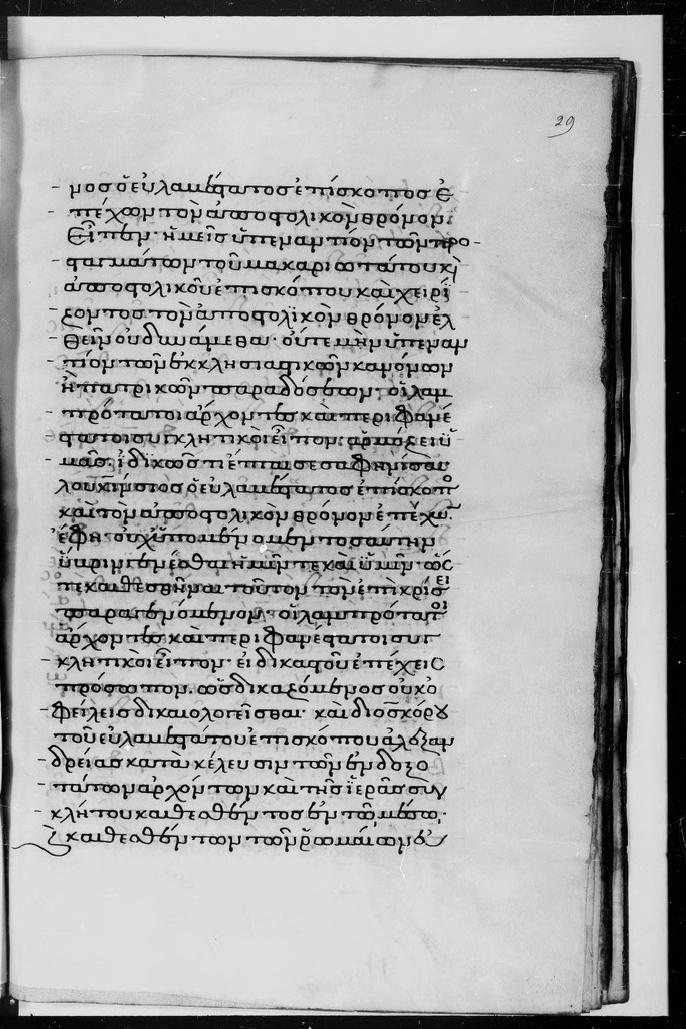 29
μος ὁ εὐλαβέστατος ἐπίσκοπος ἐ
πέχων τὸν ἀποστολικὸν θρόνον·
Εἶπεν· ἡμεῖς ὑπεναντίον τῶν προ-
σταγμάτων τοῦ μακαριωτάτου κ(αὶ)
ἀποστολικοῦ ἐπισκόπου καὶ χειρΐ
ζοντος τὸν ἀποστολϊκὸν θρόνον ἐλ
θεῖν οὐ δυνάμεθα· οὔτε μὴν ὑπεναν
τίον τῶν ἐκκλησιαστικῶν κανόνων
ἢ πατρικῶν παραδόσεων· οἱ λαμ
πρότατοι ἄρχοντες καὶ περιφανέ
στατοι συγκλητικοὶ εἶπον· ἁρμόζει ὑ
μᾶς ἰδικῶς τί ἐπταισε σαφηνίσαι
λουκίνσιος ὁ εὐλαβέστατος ἐπίσκοπο
καὶ τὸν ἀποστολικὸν θρόνον ἐπέχων
ἔφη· οὐχ ὑπομένομεν τοσαύτην
ὕβριν γενέσθαι ἡμῖν τε καὶ ὑμῖν· ὥς
τε καθεσθῆναι τοῦτον τὸν ἐπὶ κρίσει
παραγενόμενον· οἱ λαμπρότατοι
ἄρχοντες καὶ περιφανέστατοι συγ
κλητικοὶ εἶπον· εἰ δικαστοῦ ἐπέχεις
πρόσωπον. ὡς δικαζόμενος οὐκ ὀ
φείλεις δικαιολογεῖσθαι· καὶ διοσκόρου
τοῦ εὐλαβεστάτου ἐπισκόπου ἀλεξαν
δρείας κατὰ κέλευσιν τῶν ἐνδοξο
τάτων ἀρχόντων καὶ τῆς ἱερᾶς συγ
κλήτου καθεσθέντος ἐν τῶ μέσω·
καθεσθέντων τῶν ῥωμαίων ἐν